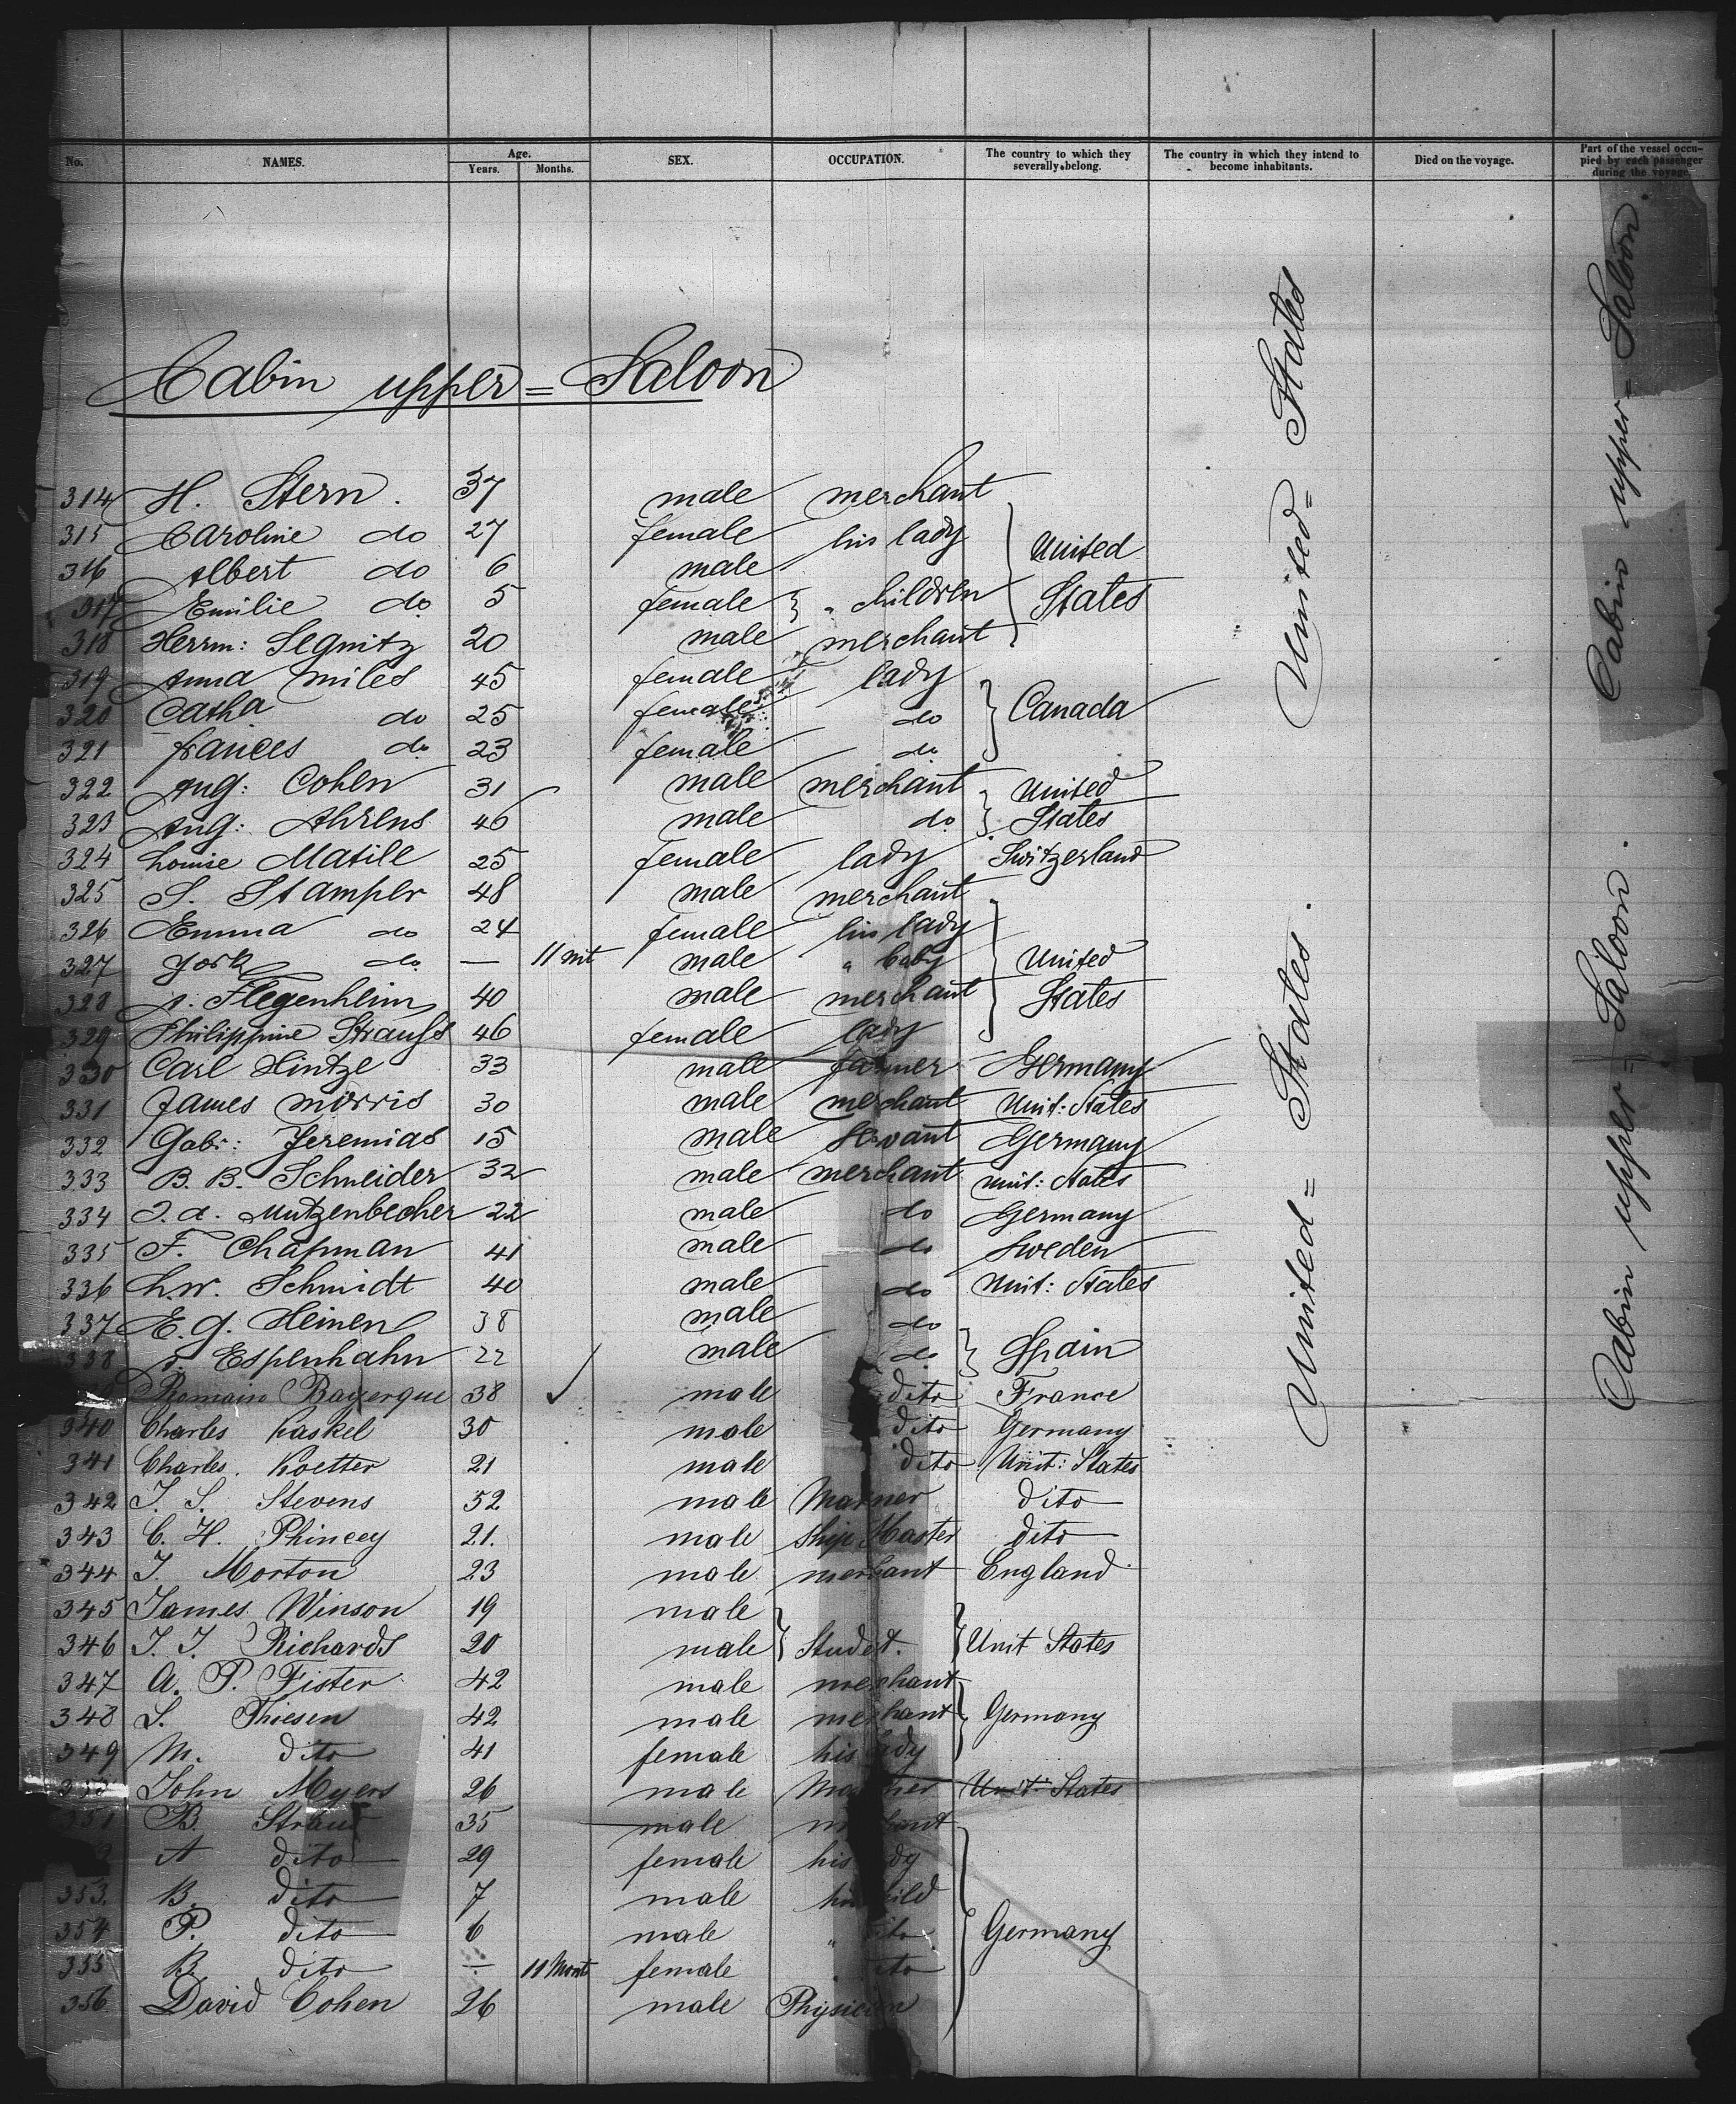 No. NAMES. Age. Years. Months. SEX. OCCUPATION. The country to which they severally belong. The country in which they intend to become inhabitants. Died on the voyage. Part of the vessel occupied by each passenger during the voyage.
Cabin upper = Saloon
314 H. Stern. 37 male merchant
315 Caroline do 27 female his lady
316 Albert do 6 male United
317 Emilie do 5 female " children States
318 Herrm: Segnitz 20 male merchant
319 Anna Miles 45 female lady
320 Catha do 25 female do Canada
321 frances do 23 female do
322 Aug: Cohen 31 male merchant United
323 Aug: Ahrens 46 male do States
324 Louise Matile 25 female lady Switzerland
325 S. Stampler 48 male merchant
326 Emma do 24 female his lady
327 York do — 11 mt male " baby United
328 Flegenheim 40 male merchant States
329 Philippine Strauss 46 female lady
330 Carl Hintze 33 male farmer Germany
331 James Morris 30 male merchant Unit: States
332 Gabr: Jeremias 15 male servant Germany
333 B. B. Schneider 32 male merchant Unit: States
334 J. A. Mutzenbecher 22 male do Germany
335 F. Chapman 41 male do Sweden
336 Lw. Schmidt 40 male do Unit: States
337 E. G. Heinen 38 male do
338 Espenhahn 22 male do Spain
Romain Bayerque 38 male dito France
340 Charles Kaskel 30 male dito Germany
341 Charles. Koetter 21 male dito Unit: States
342 J. S. Stevens 52 male Mariner dito
343 C. H. Phincey 21. male Ship Master dito
344 J. Morton 23 male merchant England
345 James Winson 19 male
346 J. J. Richards 20 male Studet. Unit States
347 A. P. Fister 42 male merchant
348 S. Thiesen 42 male merchant Germany
349 M. dito 41 female his lady
John Myers 26 male Unit: States
351 B. Straus 35 male merchant
A dito 29 female his lady
353. B. dito 7 male his child
354 P. dito 6 male " dito Germany
355 B. dito ÷ 11 Mont female dito
356 David Cohen 26 male Physician
United = States
United = States.
Cabin upper = Saloon.
Cabin upper = Saloon.